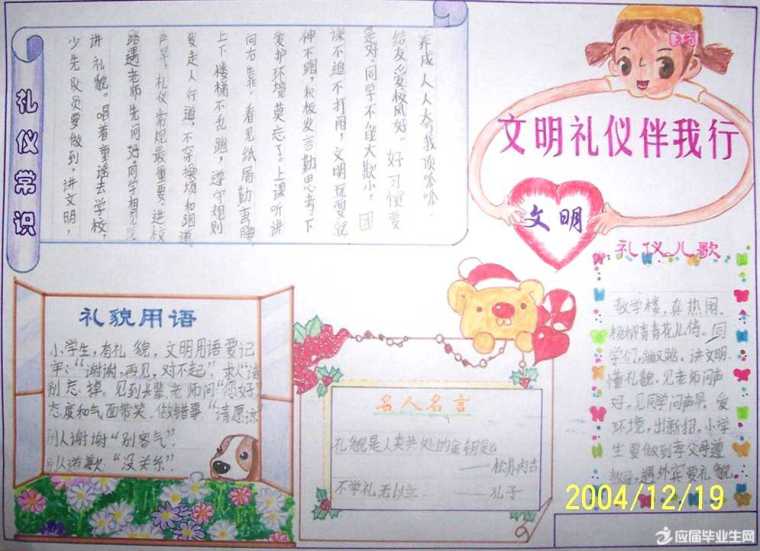 文明礼仪伴我行
文明
礼仪常识
少先队员要做到,讲文明,
讲礼貌。唱着童谣去学校,
路遇老师先问好,同学相见
礼仪常规最重要,进校
爱走人行道,不穿操场和跑道
上下楼梯不乱跑,遵守规则
向右靠。看见纸屑勤弯腰,
爱护环境莫忘了。上课听讲
神不溜,积极发言勤思考,下
课不追不打闹,文明玩耍
是对,同学不给大欺小,团
结友爱校风好。好习惯要
养成,人人夸我顶呱呱。
礼仪儿歌
教学楼,真热闹,
杨柳青青花儿俏。同
学们,
讲文明,
懂礼貌,见老师问声
好,见同学问声早,爱
环境,
小学
生要做到孝父母
遇外宾要礼貌
礼貌用语
小学生,有礼貌,文明用语要记
牢:“谢谢,再见,对不起”,求人“请”
别忘掉。见到长辈、老师问“您好”,
态度和气面带笑。做错事“请原谅
别人谢谢“别客气”
别人道歉:“没关系”.
名人名言
礼貌是人类共处的金钥匙
——松苏内吉
不学礼无以立 ——孔子
2004/12/19
应届毕业生网